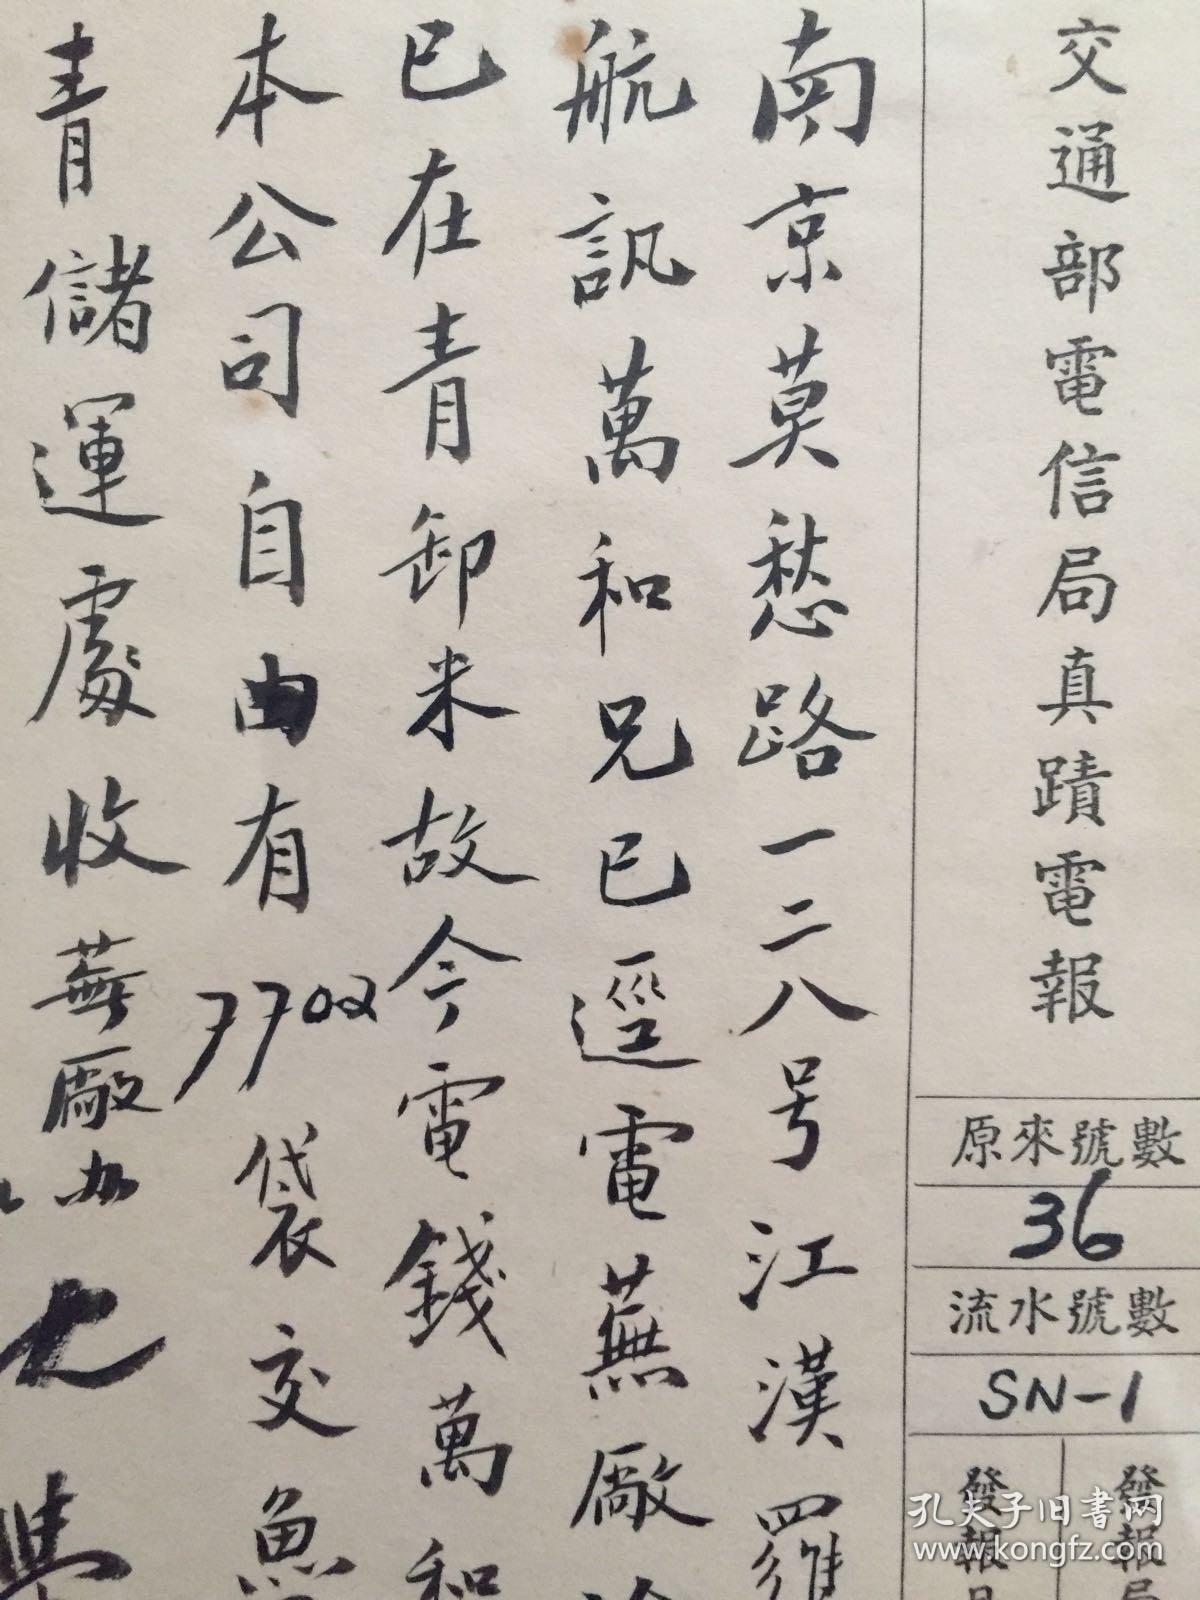 交通部電信局真蹟電報
原來號數
36
流水號數
SN-1
發報局
發報日
南京莫愁路一二八号江漢羅
航訊萬和兄已逕電蕪廠
已在青卸米故今電錢萬和
本公司自由有7702袋交魚
青儲運處收蕪廠
孔夫子旧书网
www.kongfz.com